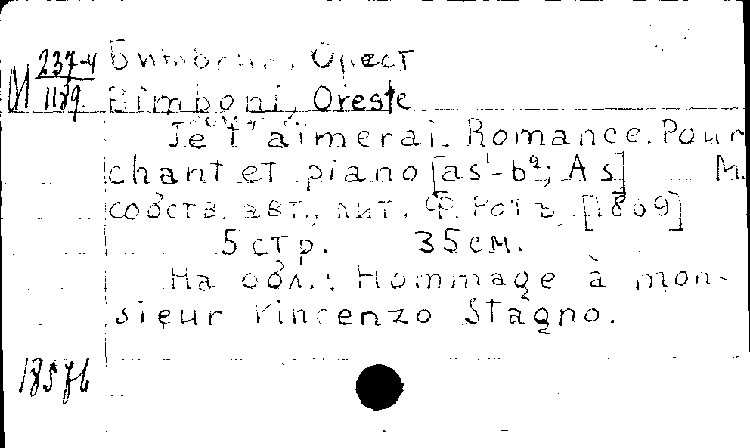 М 237-4
1189
Бимбони, Орест
Bimboni, Oreste
Je t'aimerai. Romance. Pour
chant et piano [as¹-b²; As] М.
собств. авт., лит. Ф. Котъ [1869]
5 стр. 35 см.
На обл.: Hommage à mon-
sieur Vincenzo Stagno.